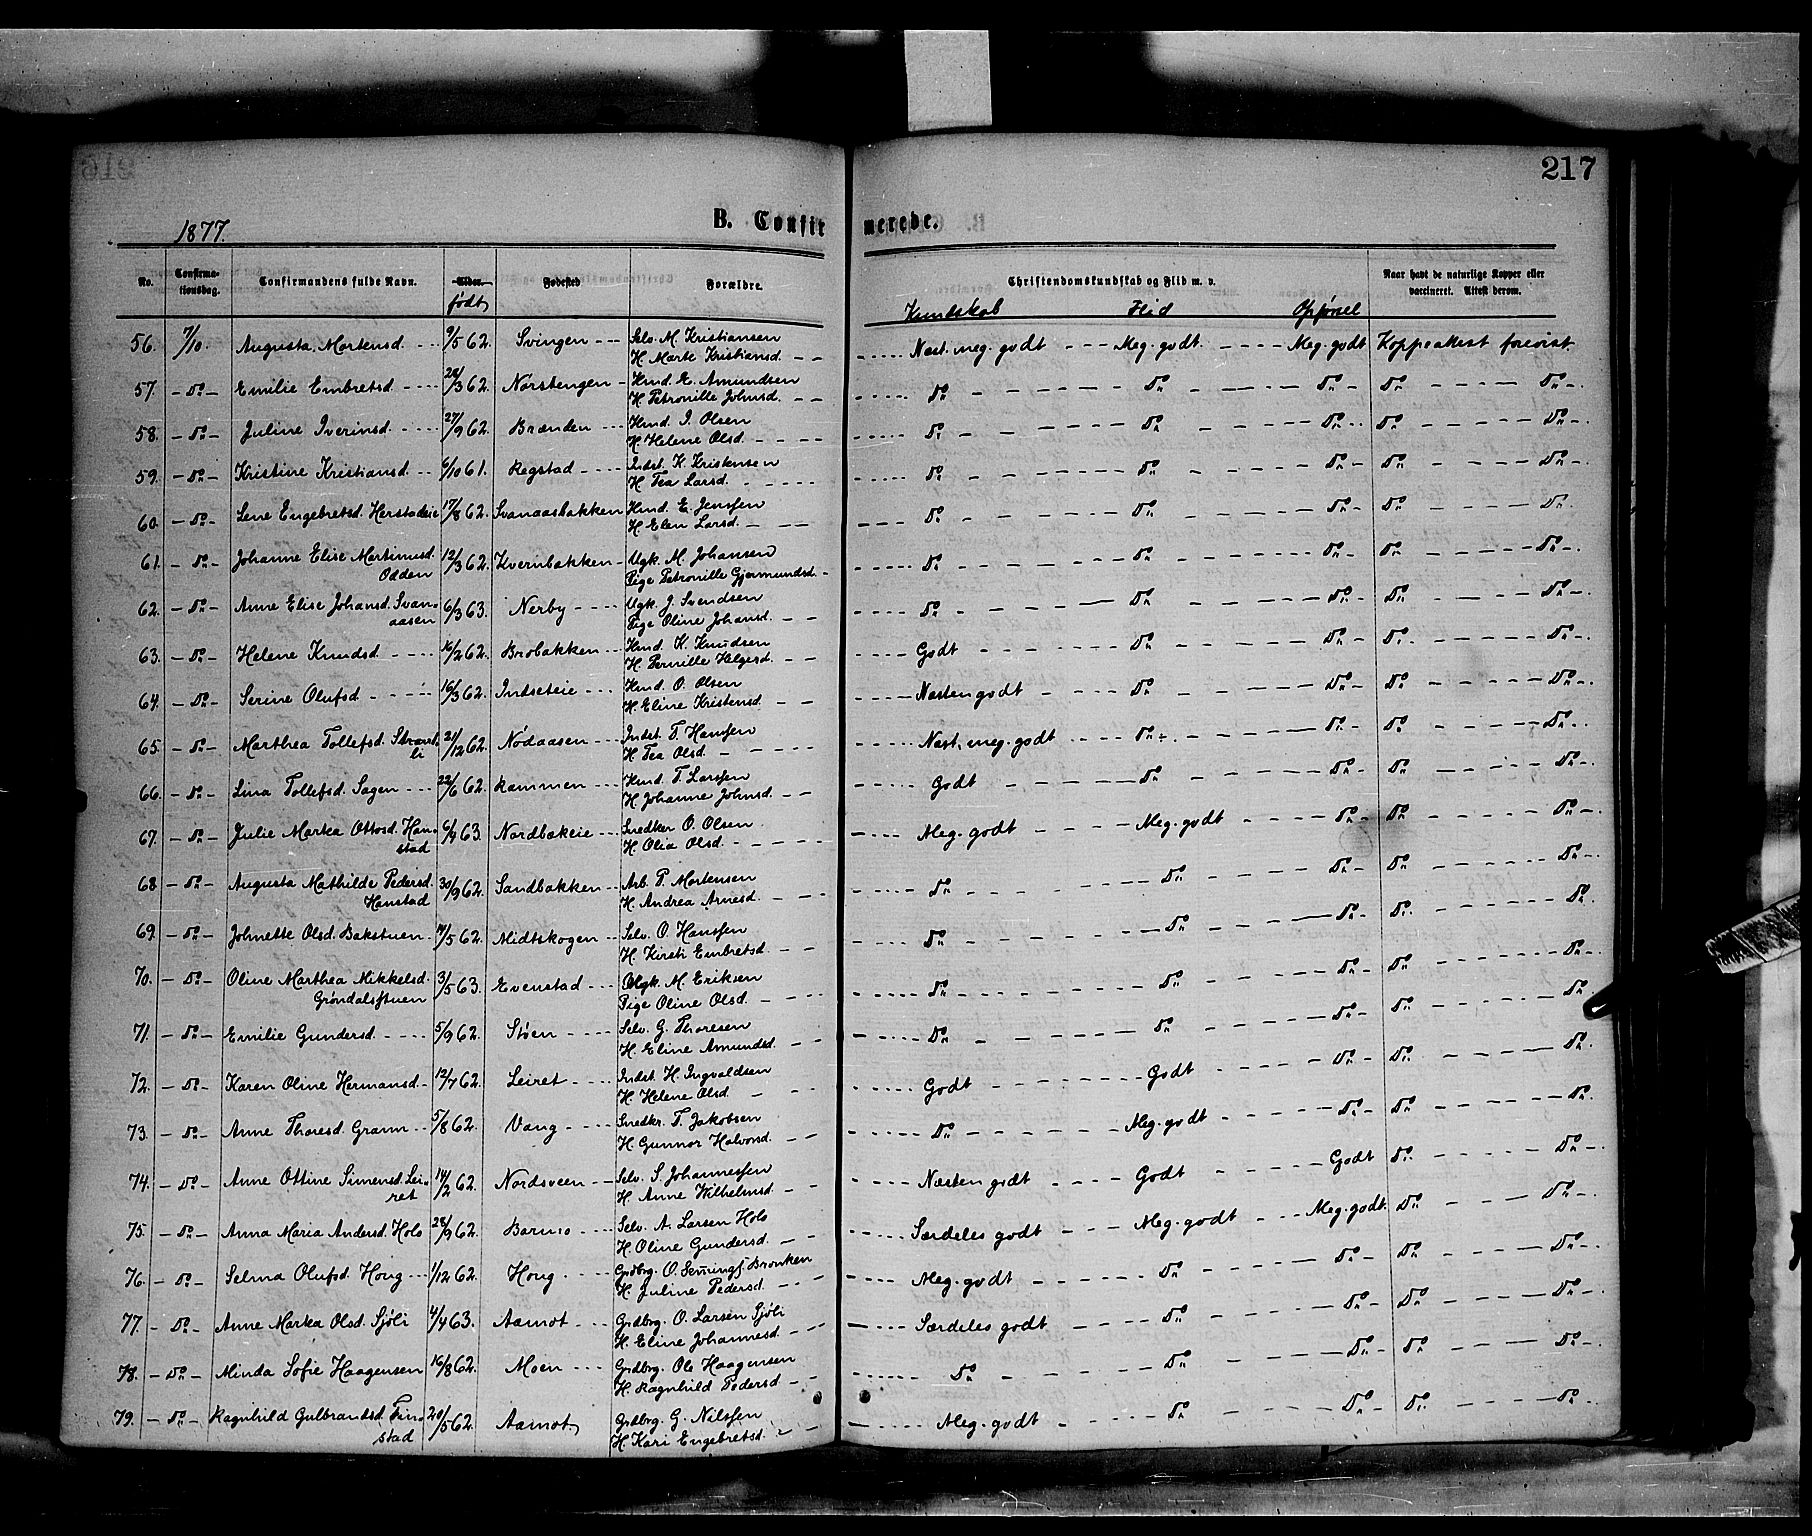 217
1877.
B. Confirmerede.
No. Confirma-tionsdag. Confirmandens fulde Navn. Alder. født Fødested Forældre. Christendomskundskab og Flid m. v. Naar havt de naturlige Kopper eller vaccineret. Attest derom.
Kundskab Flid Opførsel
56. 7/10. Augusta Mortensd. 9/5 62. Svingen Selv. M. Kristiansen Næst. meg. godt Meg. godt. Meg. godt Koppeattest forevist.
H. Marte Kristiansd.
57. Do Emilie Embretsd. 28/3 62. Norstengen Hmd. E. Amundsen Do Do Do Do Do
H. Petronille Johnsd.
58. Do Juline Iverinsd. 27/9 62. Brænden Hmd. I. Olsen Do Do Do Do Do
H. Helene Olsd.
59. Do Kristine Kristiansd. 6/10 61. Regstad Indst. K. Kristensen Do Do Do Do Do
H. Tea Larsd.
60. Do Lene Engebretsd. Herstadeie 17/8 62. Svanaasbakken Hmd. E. Jenssen Do Do Do Do Do
H. Elen Larsd.
61. Do Johanne Elise Martinusd. 12/3 62. Kvernbakken Ugk. M. Johansen Do Do Do Do Do
Odden Pige Petronille Gjermundsd.
62. Do Anne Elise Johansd. Svan- 6/3 63. Nerby Ugk. J. Svendsen Do Do Do Do Do
aasen Pige Oline Johansd.
63. Do Helene Knudsd. 16/2 62. Brobakken Hmd. K. Knudsen Godt Do Do Do Do
H. Pernille Helgesd.
64. Do Serine Olufsd. 16/3 62. Indseteie Hmd. O. Olsen Næsten godt Do Do Do Do
H. Eline Kristensd.
65. Do Marthea Tollefsd. Strand- 21/12 62. Nødaasen Indst. T. Hanssen Næst. meg. godt Do Do Do Do
li H. Tea Olsd.
66. Do Lina Tollefsd. Sagen 22/6 62. Rammen Hmd. T. Larssen Godt Do Do Do Do
H. Johanne Johnsd.
67. Do Julie Marka Ottosd. Han- 6/4 63. Nordbakeie Snedker O. Olsen Meg. godt Meg. godt Do Do Do
stad H. Olia Olsd.
68 Do Augusta Mathilde Pedersd. 30/9 62. Sandbakken Arb. P. Mortensen Do Do Do Do Do
Hanstad H. Andrea Arnesd.
69. Do Johnette Olsd. Bakstuen. 14/5 62. Midtskogen Selv. O. Hanssen Do Do Do Do Do
H. Kirsti Embretsd.
70. Do Oline Marthea Mikkelsd. 3/5 63. Evenstad Ugk. M. Eriksen Do Do Do Do Do
Grøndalsstuen Pige Oline Olsd.
71. Do Emilie Gundersd. 5/9 62. Støen Selv. G. Thoresen Do Do Do Do Do
H. Eline Amundsd.
72. Do Karen Oline Hermansd. 12/7 62. Leiret Indst. H. Ingvaldsen Godt Godt Do Do Do
H. Helene Olsd.
73. Do Anne Thoresd. Gramm 5/8 62. Vang Snedkr. T. Jakobsen Do Meg. godt Do Do Do
H. Gunnor Halvorsd.
74. Do Anne Ottine Simensd. Lei- 14/2 62. Nordsveen Selv. S. Johannessen Næsten godt Godt Godt Do Do
ret H. Anne Wilhelmsd.
75. Do Anna Maria Andersd. Holo 28/9 62. Barmo Selv. A. Larsen Holo Særdeles godt Meg. godt Meg. godt. Do Do
H. Oline Gundersd.
76. Do Selma Olufsd. Houg 1/12 62. Houg Grdbrg. O. Semingsj. Bronken Meg. godt Do Do Do Do
H. Juline Pedersd.
77. Do Anne Marka Olsd. Sjøli 4/4 63. Aamot Grdbrg. O. Larsen Sjøli Særdeles godt Do Do Do Do
H. Eline Johannesd.
78. Do Minda Sofie Haagensen 16/8 62. Moen Grdbrg. Ole Haagensen Do Do Do Do Do
H. Ragnhild Pedersd.
79. Do Ragnhild Gulbrandsd. Fin- 20/5 62. Aamot. Grdbrg. G. Nilssen Meg. godt Do Do Do Do
stad H. Kari Engebretsd.